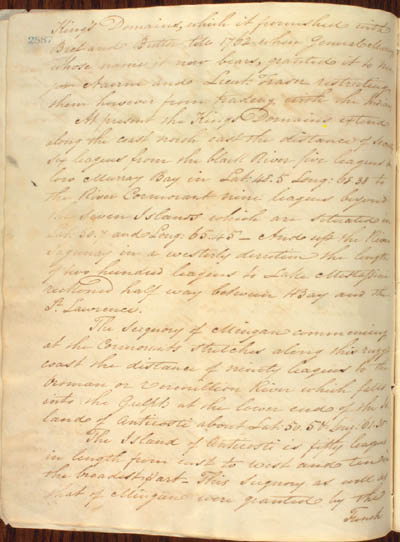 2887
King's Domains, which it furnished with
Beef and Butter till 1762 when General Murray
whose name it now bears, granted it to
Nairne and Lieut. Fraser restricting
them however from trading with the Indians
At present the King's Domains extend
along the coast north east the distance of
six leagues from the black River five leagues
low Murray Bay in Lat:
the River Cormorant nine leagues beyond
the Seven Islands which are situated in
Lat: 50. and Long: 65.45 – And up the River
Saguenay in a westerly direction the length
of two hundred leagues to Lake
reckoned half way between HBay and the
St. Lawrence.
The Seignory of Mingan commencing
at the Cormorants stretches along this rugged
coast the distance of ninety leagues to the
or River which falls
into the Gulph at the lower end of the Is
lands of Anticosti about Lat: 50.
The Island of Anticosti is fifty leagues
in length from east to west and ten in
the broadest part – This Seignory as well as
that of Mingan were granted by the
French